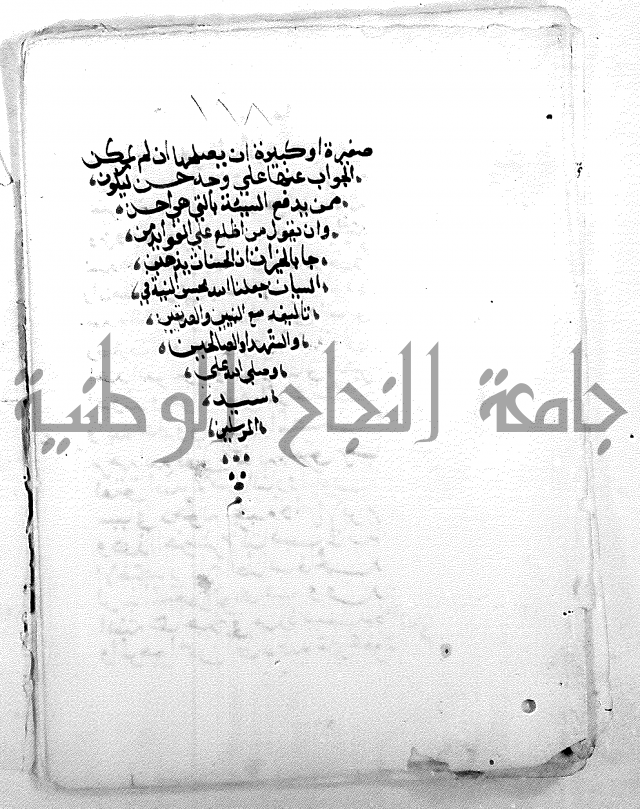 ١١٨
صغيرة او كبيرة ان يصلحها ان لم يمكن
الجواب عنها على وجه حسن ليكون
ممن يدفع السيئة بالتي هي احسن
وان يقول من اطلع على الفوايد من
جا بالخيرات ان الحسنات يذهبن
السيات جعلنا الله بحسن النية في
تاليفه مع النبيين والصديقين
والشهدا والصالحين
وصلى الله على
سيد
المرسلين
م
جامعة النجاح الوطنية